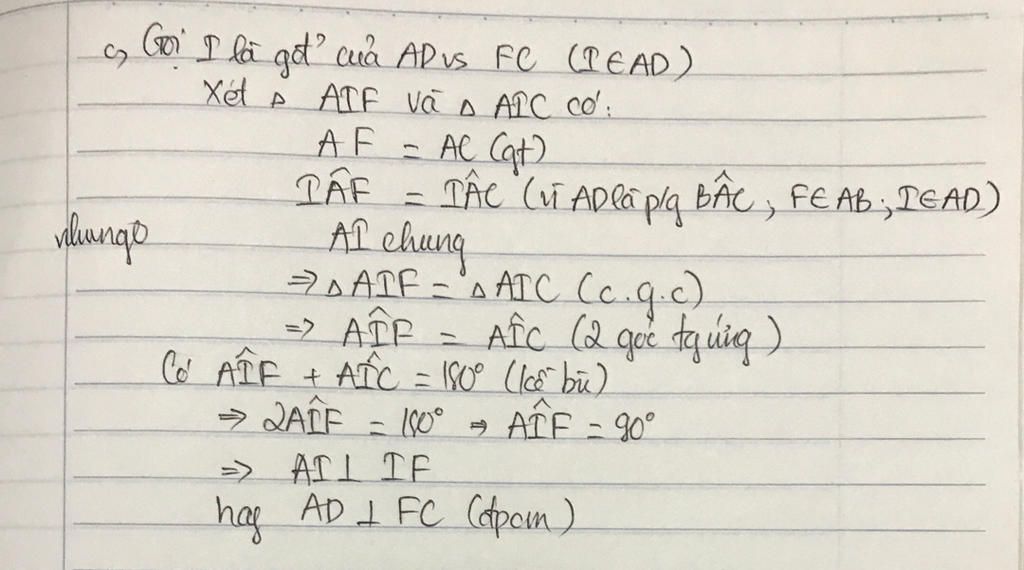 c, Gọi I là gđ' của AD vs FC (I∈AD)
Xét △ AIF và △ AIC có:
AF = AC (gt)
IÂF = IÂC (vì AD là p/g BÂC, F∈AB, I∈AD)
AI chung
⇒ △AIF = △AIC (c.g.c)
⇒ AÎF = AÎC (2 góc tg ứng)
Có AÎF + AÎC = 180° (kề bù)
⇒ 2AÎF = 180° ⇒ AÎF = 90°
⇒ AI ⊥ IF
hay AD ⊥ FC (đpcm)